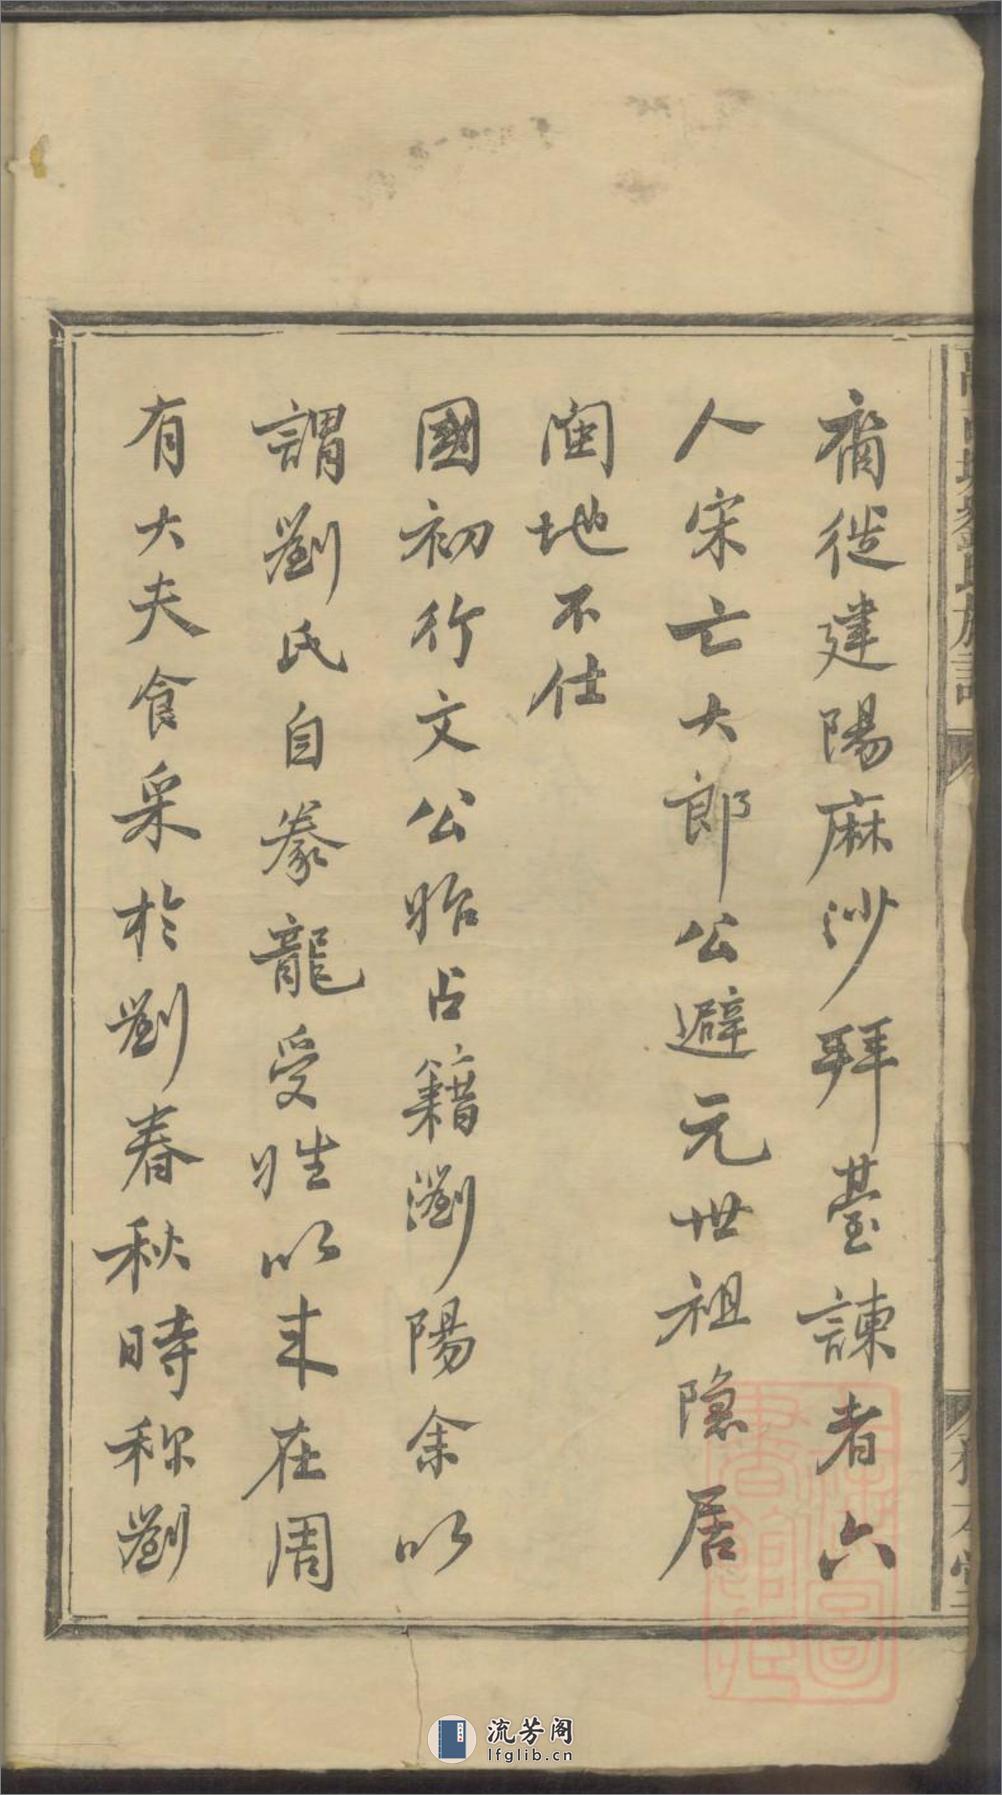 裔徙建陽麻沙拜臺諫者六
人宋亡大郎公避元世祖隐居
閩地不仕
國初行文公始占籍瀏陽余以
謂劉氏自豢龍受姓以来在周
有大夫食采於劉春秋時称劉
流芳阁
lfglib.cn